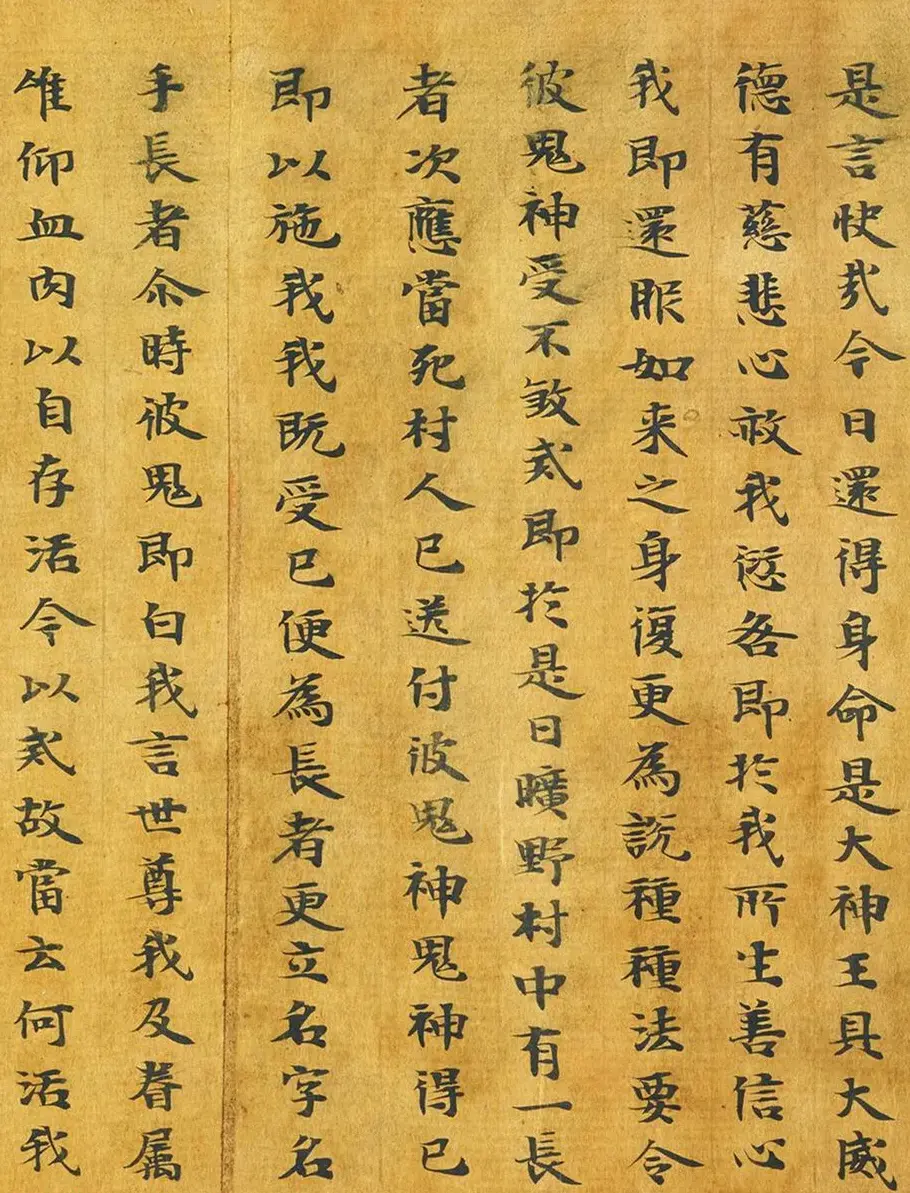 是言快哉今日還得身命是大神王具大威
德有慈悲心赦我愆咎即於我所生善信心
我即還服如来之身復更為説種種法要令
彼鬼神受不煞戒即於是日曠野村中有一長
者次應當死村人已送付彼鬼神鬼神得已
即以施我我既受已便為長者更立名字名
手長者尒時彼鬼即白我言世尊我及眷属
唯仰血肉以自存活今以戒故當云何活我